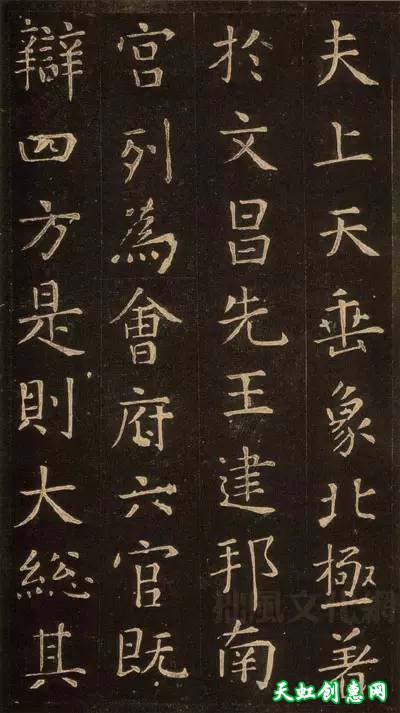 夫上天垂象北極著
於文昌先王建邦南
宮列為會府六官既
辯四方是則大總其
天虹创惠网